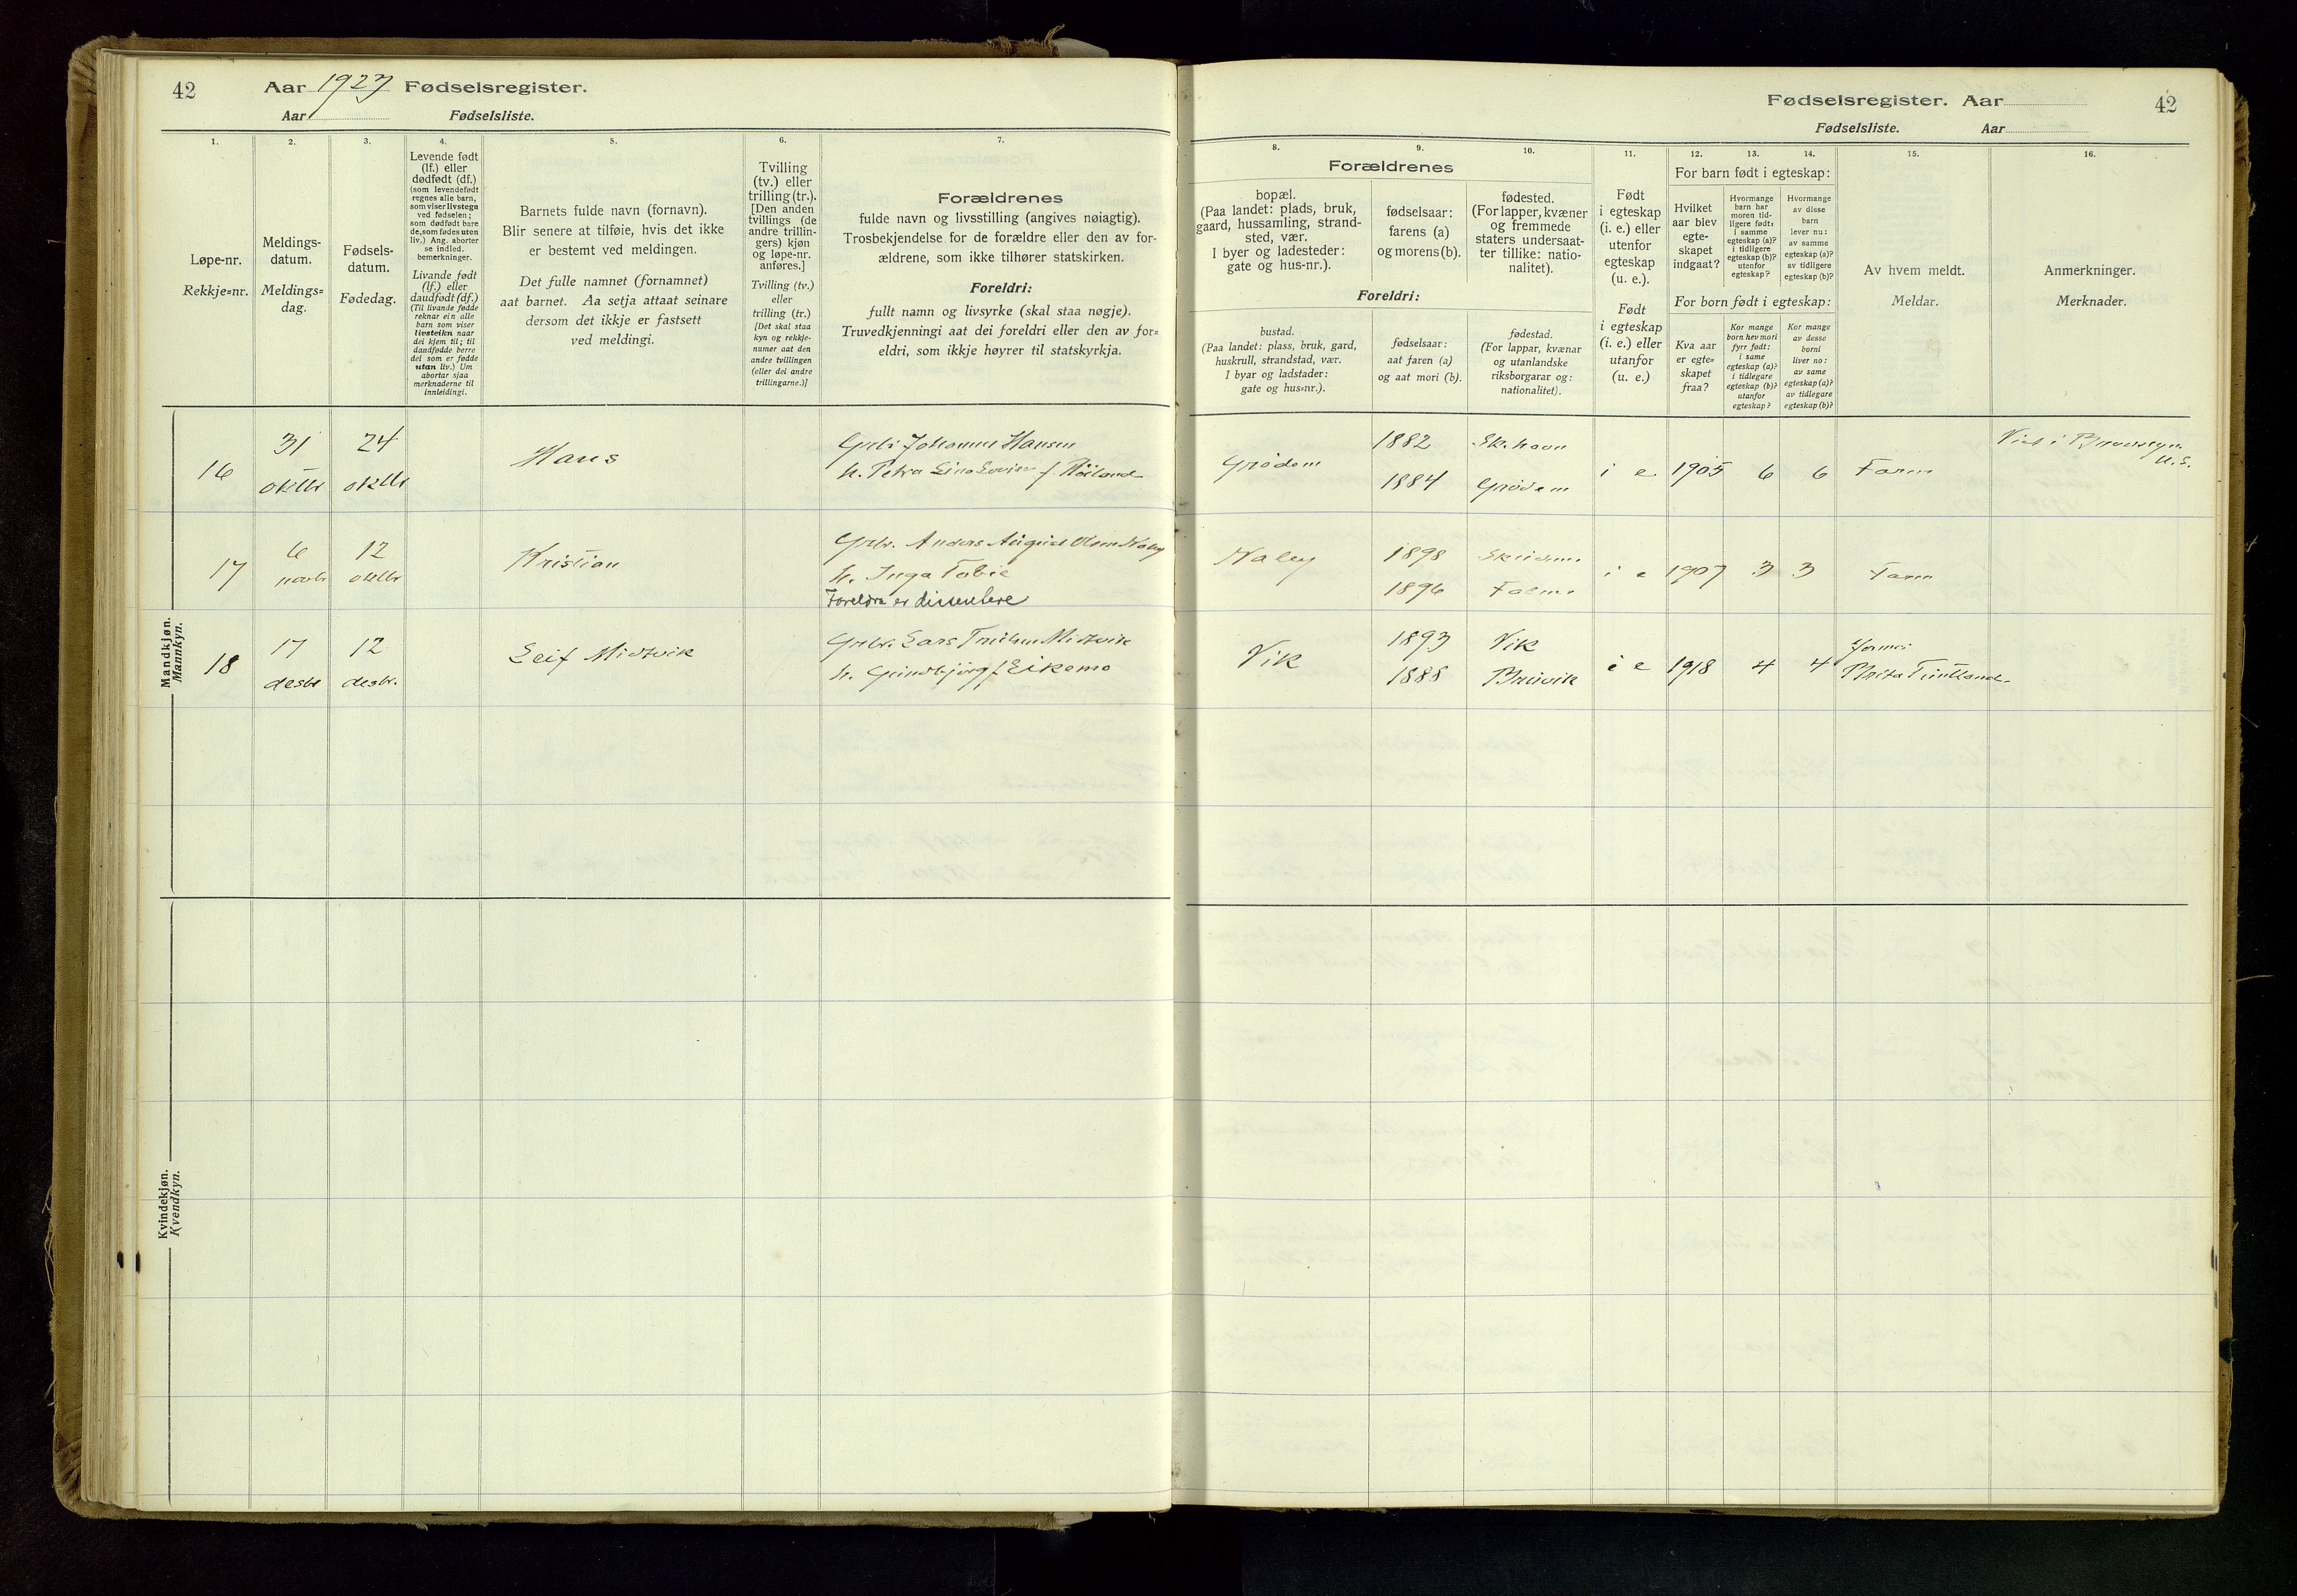 42
Aar 1927 Fødselsregister.
Aar Fødselsliste.
1.
2.
3.
4.
5.
6.
7.
Løpe-nr.
Rekkje=nr.
Meldings-
datum.
Meldings=
dag.
Fødsels-
datum.
Fødedag.
Levende født
(lf.) eller
dødfødt (df.)
(som levendefødt
regnes alle barn,
som viser livstegn
ved fødselen;
som dødfødt bare
de, som fødes uten
liv.) Ang. aborter
se indled.
bemerkninger.
Livande født
(lf.) eller
daudfødt (df.)
(Til livande fødde
reknar ein alle
barn som viser
livsteikn naar
dei kjem til; til
daudfødde berre
dei som er fødde
utan liv.) Um
abortar sjaa
merknaderne til
innleidingi.
Barnets fulde navn (fornavn).
Blir senere at tilføie, hvis det ikke
er bestemt ved meldingen.
Det fulle namnet (fornamnet)
aat barnet. Aa setja attaat seinare
dersom det ikkje er fastsett
ved meldingi.
Tvilling
(tv.) eller
trilling (tr.).
[Den anden
tvillings (de
andre trillin-
gers) kjøn
og løpe-nr.
anføres.]
Tvilling (tv.)
eller
trilling (tr.)
[Det skal staa
kyn og rekkje-
numer aat den
andre tvillingen
(eller dei andre
trillingarne.)]
Forældrenes
fulde navn og livsstilling (angives nøiagtig).
Trosbekjendelse for de forældre eller den av for-
ældrene, som ikke tilhører statskirken.
Foreldri:
fullt namn og livsyrke (skal staa nøgje).
Truvedkjenningi aat dei foreldri eller den av for=
eldri, som ikkje høyrer til statskyrkja.
Mandkjøn.
Mannkyn.
16
31
oktbr
24
oktbr
Hans
Johannes Hansen
h. Petra
17
6
novbr
12
oktbr
Kristian
Grbr. Anders August Olsen Naley
h. Inga Tobie
Foreldra er dissentere
18
17
desbr
12
desbr.
Leif Midtvik
Grbr. Lars Midtvik
h. Gundbjørg f. Eikemo
Kvindekjøn.
Kvendkyn.
Fødselsregister. Aar
42
Fødselsliste. Aar
8.
9.
10.
11.
12.
13.
14.
15.
16.
Forældrenes
bopæl.
(Paa landet: plads, bruk,
gaard, hussamling, strand-
sted, vær.
I byer og ladesteder:
gate og hus-nr.).
fødselsaar:
farens (a)
og morens (b).
fødested.
(For lapper, kvæner
og fremmede
staters undersaat-
ter tillike: natio-
nalitet).
Foreldri:
bustad.
(Paa landet: plass, bruk, gard,
huskrull, strandstad, vær.
I byar og ladstader:
gate og hus=nr.).
fødselsaar:
aat faren (a)
og aat mori (b).
fødestad.
(For lappar, kvænar
og utanlandske
riksborgarar og:
nationalitet).
Født
i egteskap
(i. e.) eller
utenfor
egteskap
(u. e.).
Født
i egteskap
(i. e.) eller
utanfor
(u. e.)
For barn født i egteskap:
Hvilket
aar blev
egte-
skapet
indgaat?
Hvormange
barn har
moren tid-
ligere født:
i samme
egteskap (a)?
i tidligere
egteskap (b)?
utenfor
egteskap?
Hvormange
av disse
barn
lever nu:
av samme
egteskap (a)?
av tidligere
egteskap (b)?
For born født i egteskap:
Kva aar
er egte=
skapet
fraa?
Kor mange
born hev mori
fyrr født:
i same
egteskap (a)?
i tidlegare
egteskap (b)?
utanfor
egteskap?
Kor mange
av desse
borni
liver no:
av same
egteskap (a)?
av tidlegare
egteskap (b)?
Av hvem meldt.
Meldar.
Anmerkninger.
Merknader.
Grødem
1882
1884
Sk.havn
Grødem
i e
1905
6
6
Faren
Naley
1898
1896
i e
1907
3
3
Faren
Vik
1893
1888
Vik
i e
1918
4
4